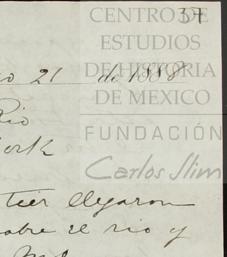 37
CENTRO DE
ESTUDIOS
DE HISTORIA
DE MEXICO
FUNDACIÓN
Carlos Slim
21 de 1888
Rio
ork
llegaron
sobre el rio y